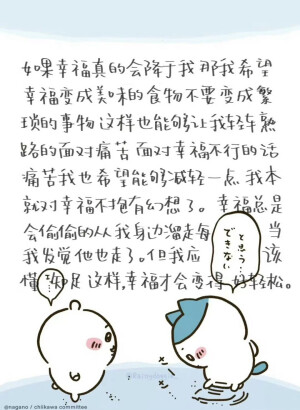 如果幸福真的会降于我那我希望
幸福变成美味的食物不要变成繁
琐的事物这样也能够让我轻车熟
路的面对痛苦面对幸福不行的话
痛苦我也希望能够减轻一点我本
就对幸福不抱有幻想了。幸福总是
会偷偷的从我身边溜走每 当
我发觉他也走了。但我应 该
懂 知足 这样,幸福才会变得 好轻松。
と思う…
できない
@nagano / chiikawa committee